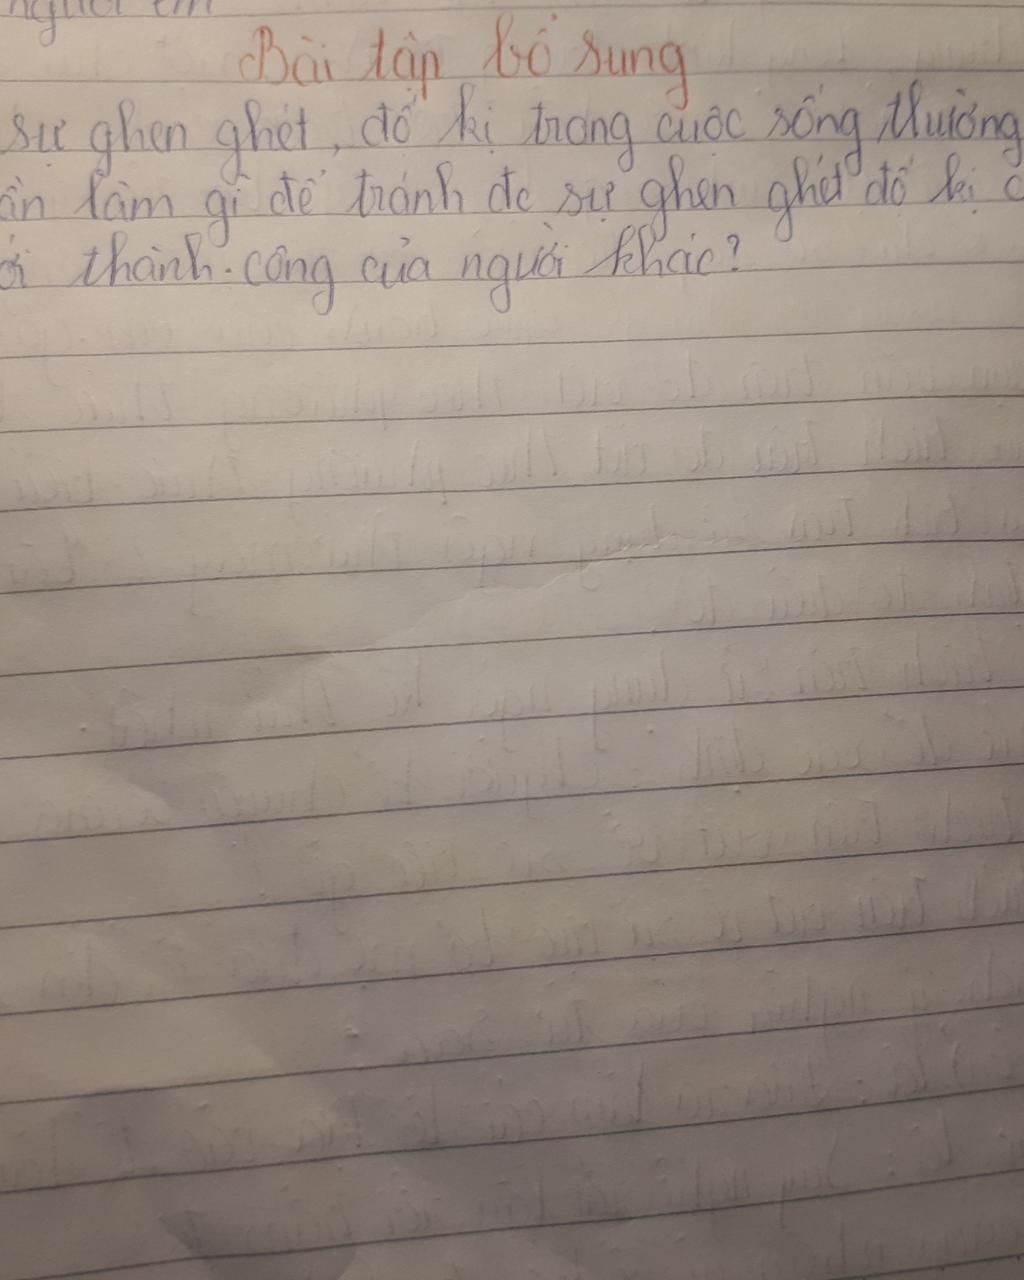 người em
Bài tập bổ sung
sự ghen ghét, đố kị trong cuộc sống thường
làm gì để tránh đc sự ghen ghét đố kị
thành công của người khác?